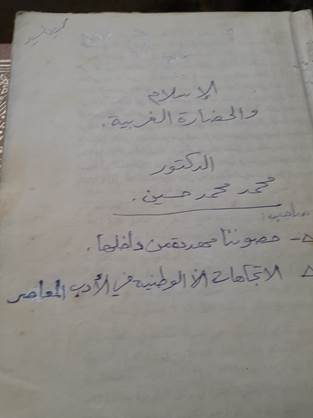 الإسلام
والحضارة الغربية.
الدكتور
محمد محمد حسين.
صاحب:
- حصوننا مهددة من داخلها.
الاتجاهات الوطنية في الأدب المعاصر